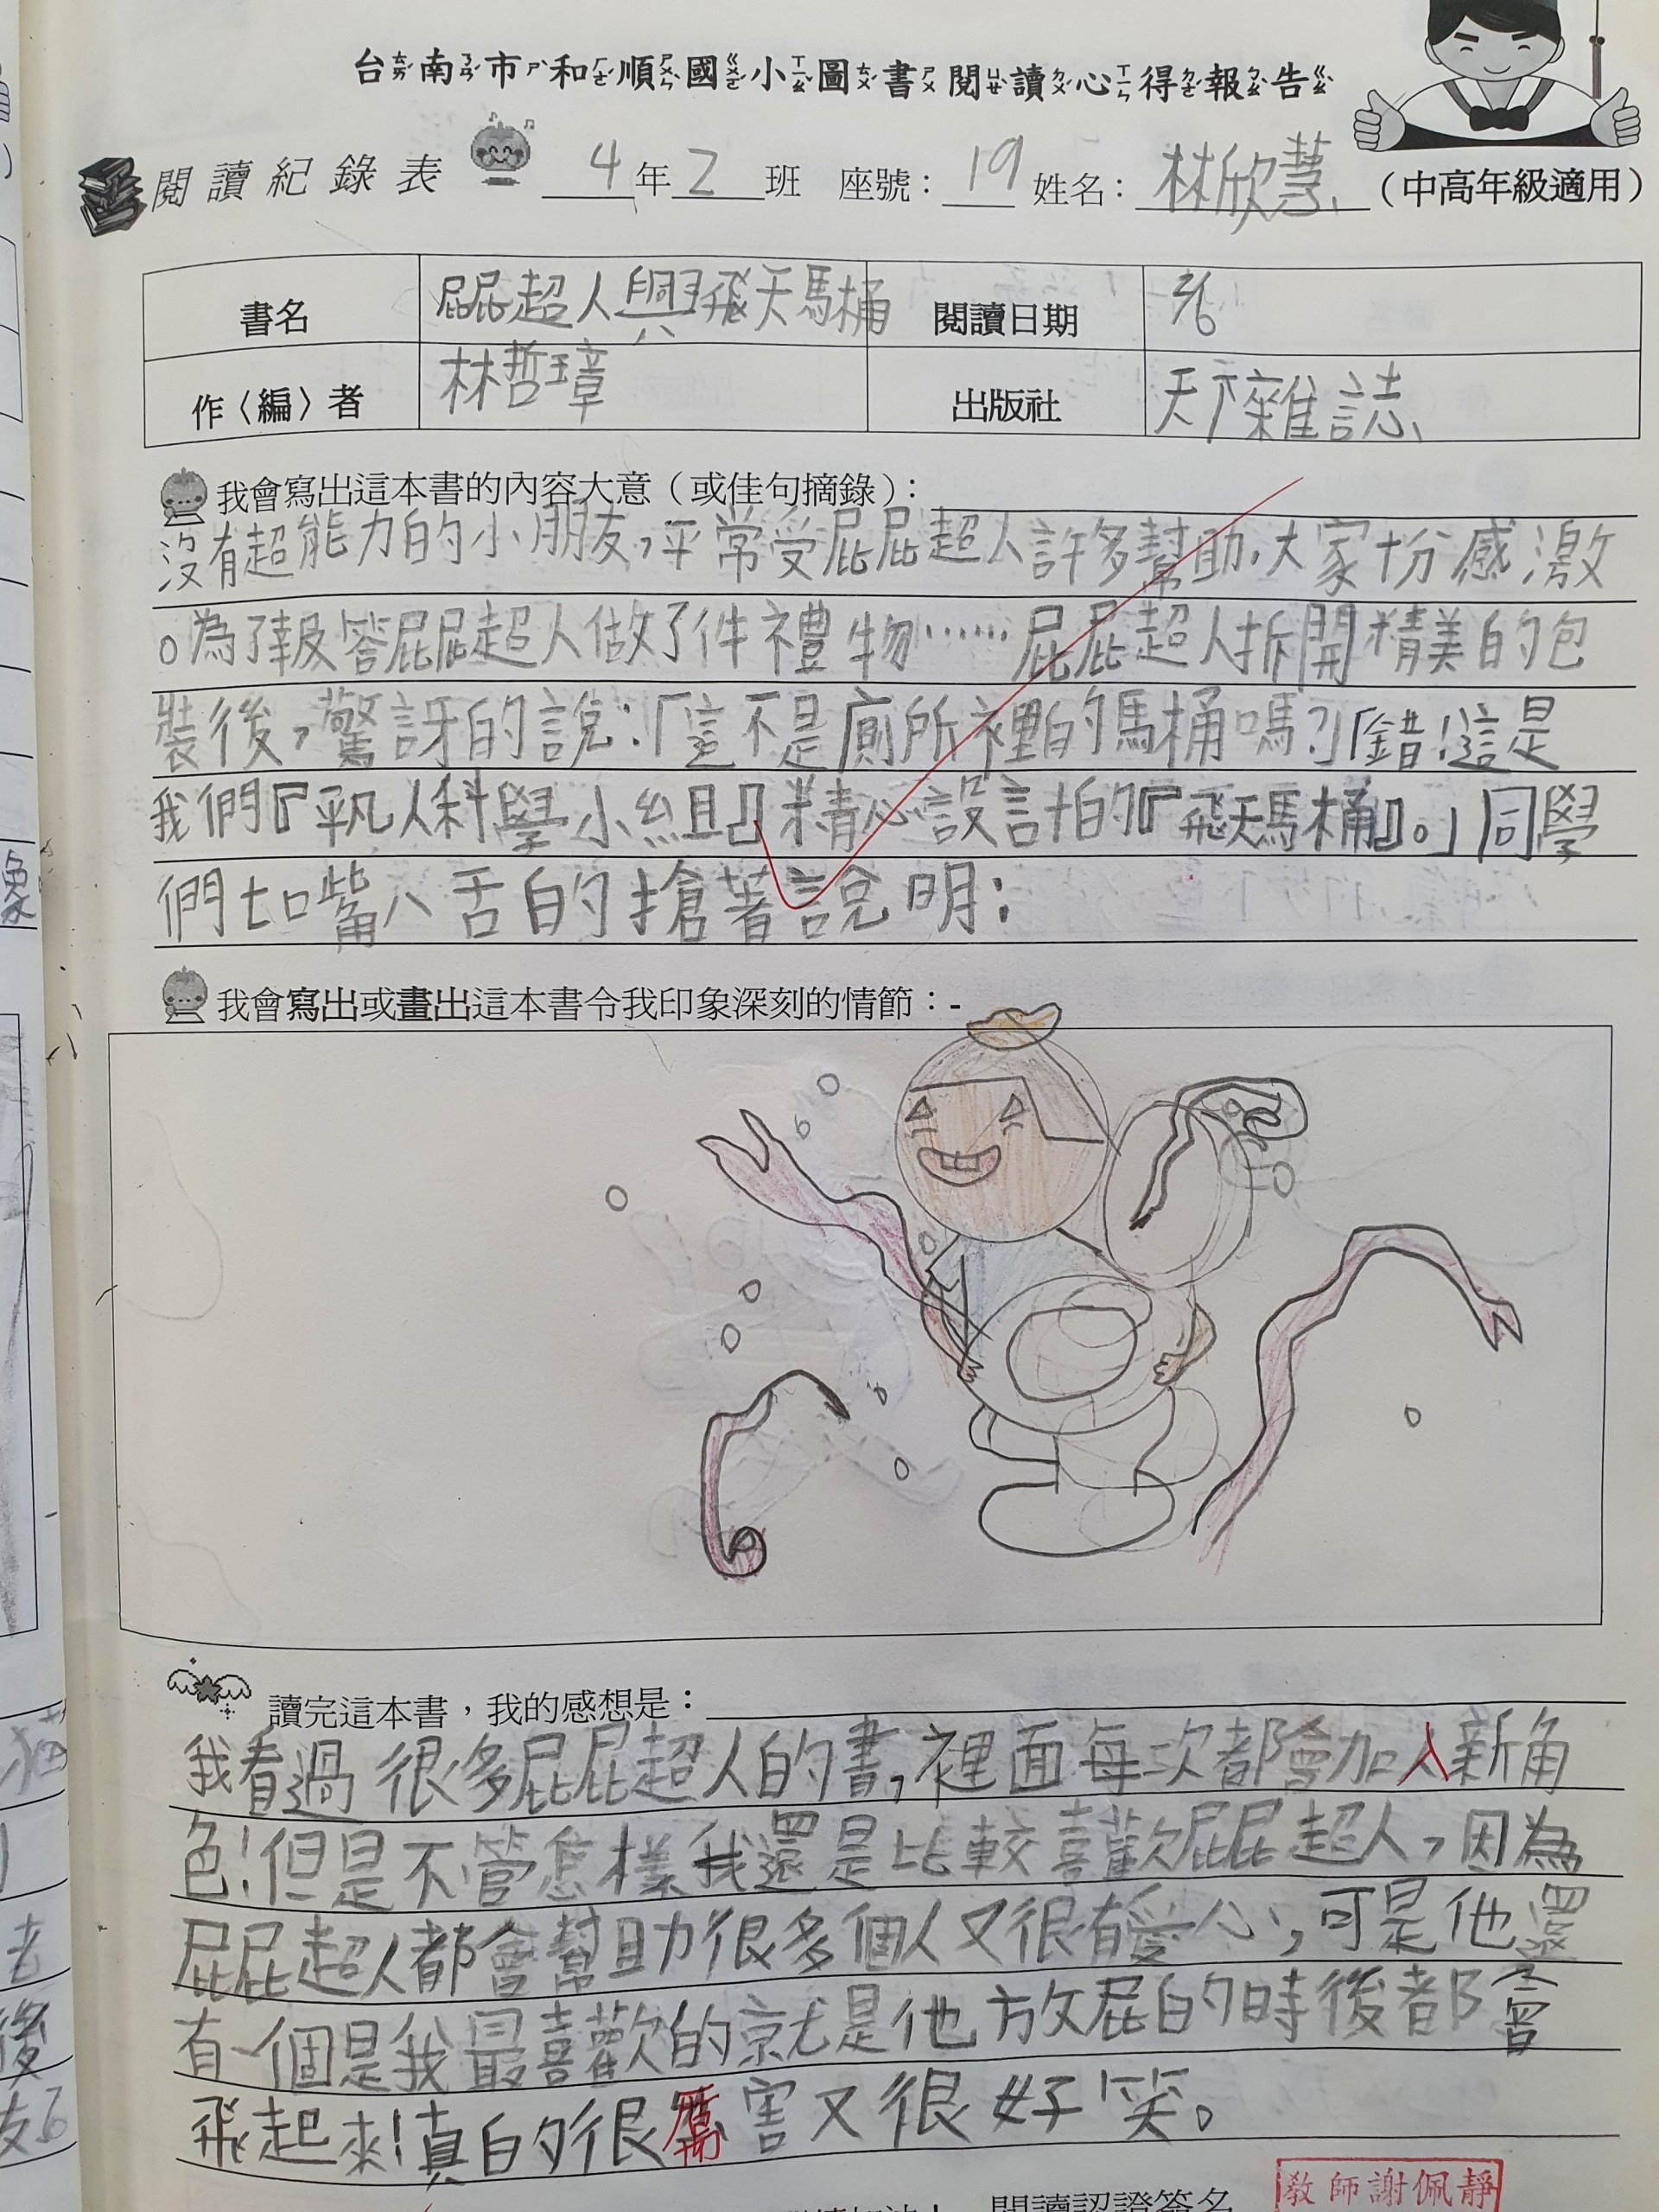 台南市和順國小圖書閱讀心得報告
閱讀紀錄表 4年2班 座號：19 姓名：林欣慧 （中高年級適用）
書名 屁屁超人與飛天馬桶 閱讀日期 3/6
作〈編〉者 林哲璋 出版社 天下雜誌
我會寫出這本書的內容大意（或佳句摘錄）：
沒有超能力的小朋友，平常受屁屁超人許多幫助，大家十分感激
。為了報答屁屁超人做了件禮物……屁屁超人拆開精美的包
裝後，驚訝的說：「這不是廁所裡的馬桶嗎？」「錯！這是
我們『平凡人科學小組』精心設計的『飛天馬桶』。」同學
們七嘴八舌的搶著說明：
我會寫出或畫出這本書令我印象深刻的情節：-
讀完這本書，我的感想是：
我看過很多屁屁超人的書，裡面每次都會加入新角
色！但是不管怎樣我還是比較喜歡屁屁超人，因為
屁屁超人都會幫助很多個人又很有愛心，可是他還
有一個是我最喜歡的就是他放屁的時後都會
飛起來！真的很厲害又很好笑。
閱讀認證簽名
教師謝佩靜